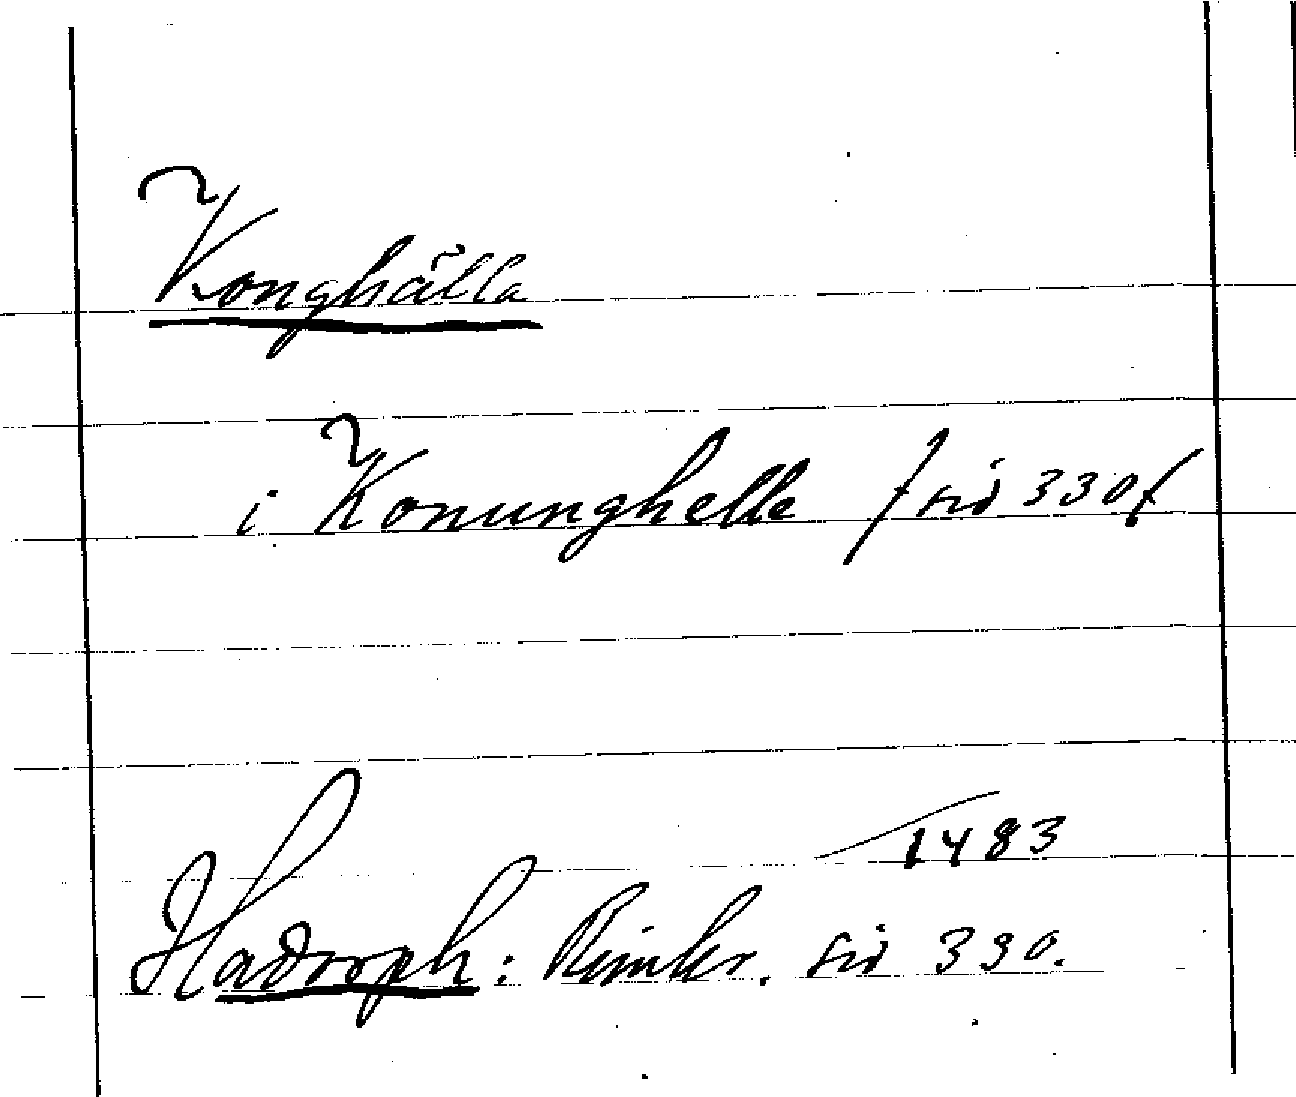 Konghälla
i Konunghelle / sid 330/
1483
Hadorph: Rimkr. sid 330.